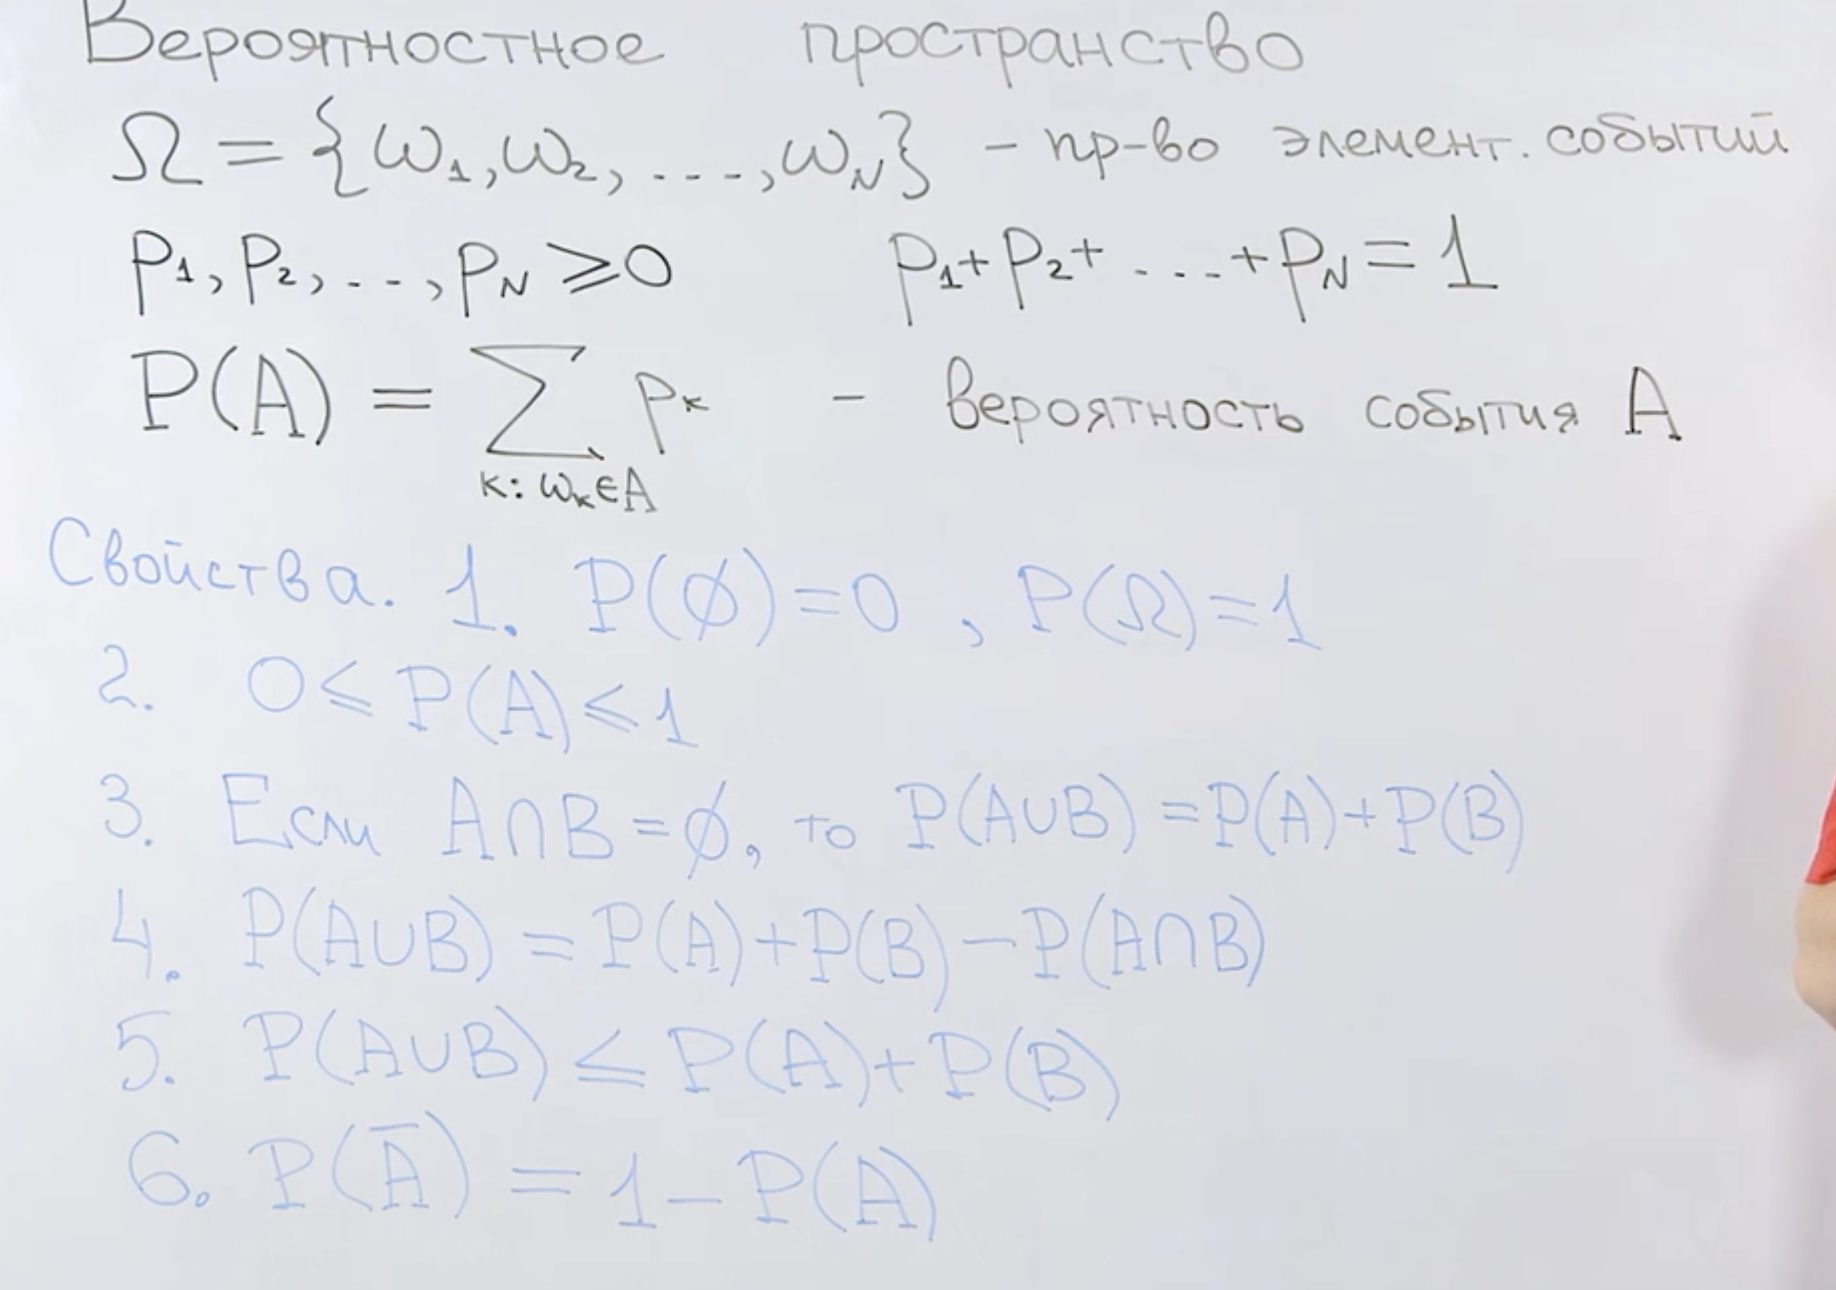 Вероятностное пространство
Ω = {ω₁, ω₂, ..., ω_N} - пр-во элемент. событий
p₁, p₂, ..., p_N ⩾ 0 p₁ + p₂ + ... + p_N = 1
P(A) = ∑ pₖ - вероятность события A
к: ωₖ ∈ A
Свойства. 1. P(∅) = 0, P(Ω) = 1
2. 0 ⩽ P(A) ⩽ 1
3. Если A∩B = ∅, то P(A∪B) = P(A) + P(B)
4. P(A∪B) = P(A) + P(B) - P(A∩B)
5. P(A∪B) ⩽ P(A) + P(B)
6. P(A̅) = 1 - P(A)